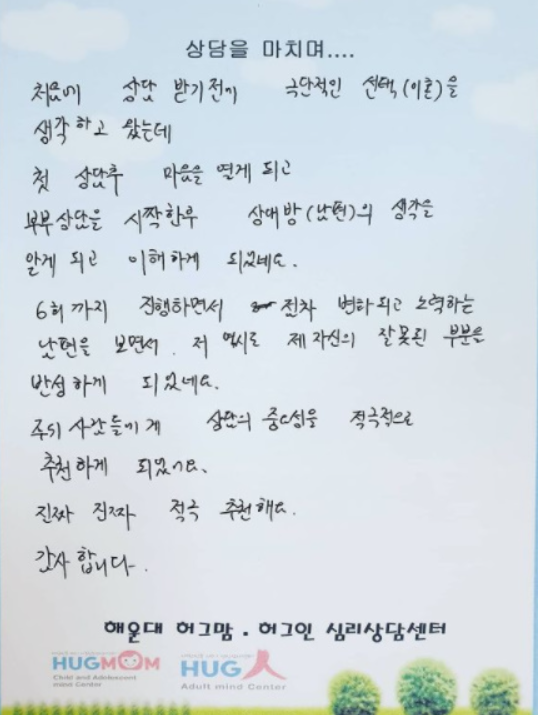 상담을 마치며....
처음에 상담 받기전에 극단적인 선택(이혼)을
생각하고 왔는데
첫 상담후 마음을 열게 되고
부부상담을 시작한후 상대방(남편)의 생각을
알게 되고 이해하게 되었네요.
6회까지 진행하면서 점차 변하되고 노력하는
남편을 보면서. 저 역시도 제 자신의 잘못된 부분을
반성하게 되었네요.
주위 사람들에게 상담의 중요성을 적극적으로
추천하게 되었어요.
진짜 진짜 적극 추천해요.
감사합니다.
해운대 허그맘 . 허그인 심리상담센터
HUGMOM HUG人
Child and Adolescent Adult mind Center
mind Center